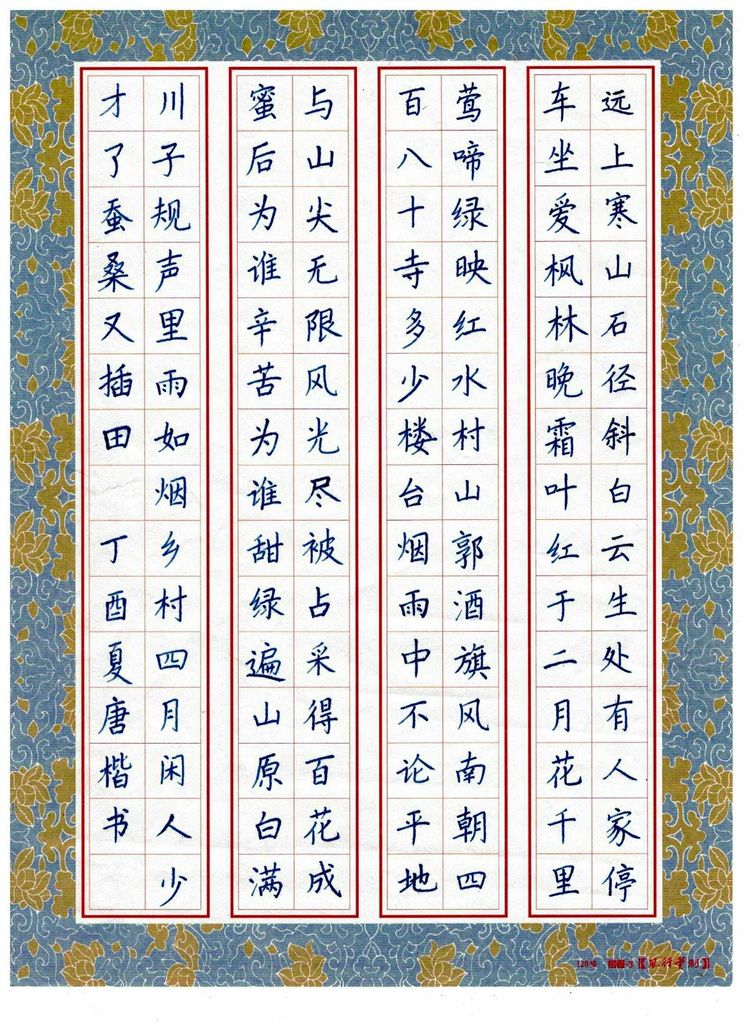 远上寒山石径斜白云生处有人家停
车坐爱枫林晚霜叶红于二月花千里
莺啼绿映红水村山郭酒旗风南朝四
百八十寺多少楼台烟雨中不论平地
与山尖无限风光尽被占采得百花成
蜜后为谁辛苦为谁甜绿遍山原白满
川子规声里雨如烟乡村四月闲人少
才了蚕桑又插田 丁酉夏唐楷书